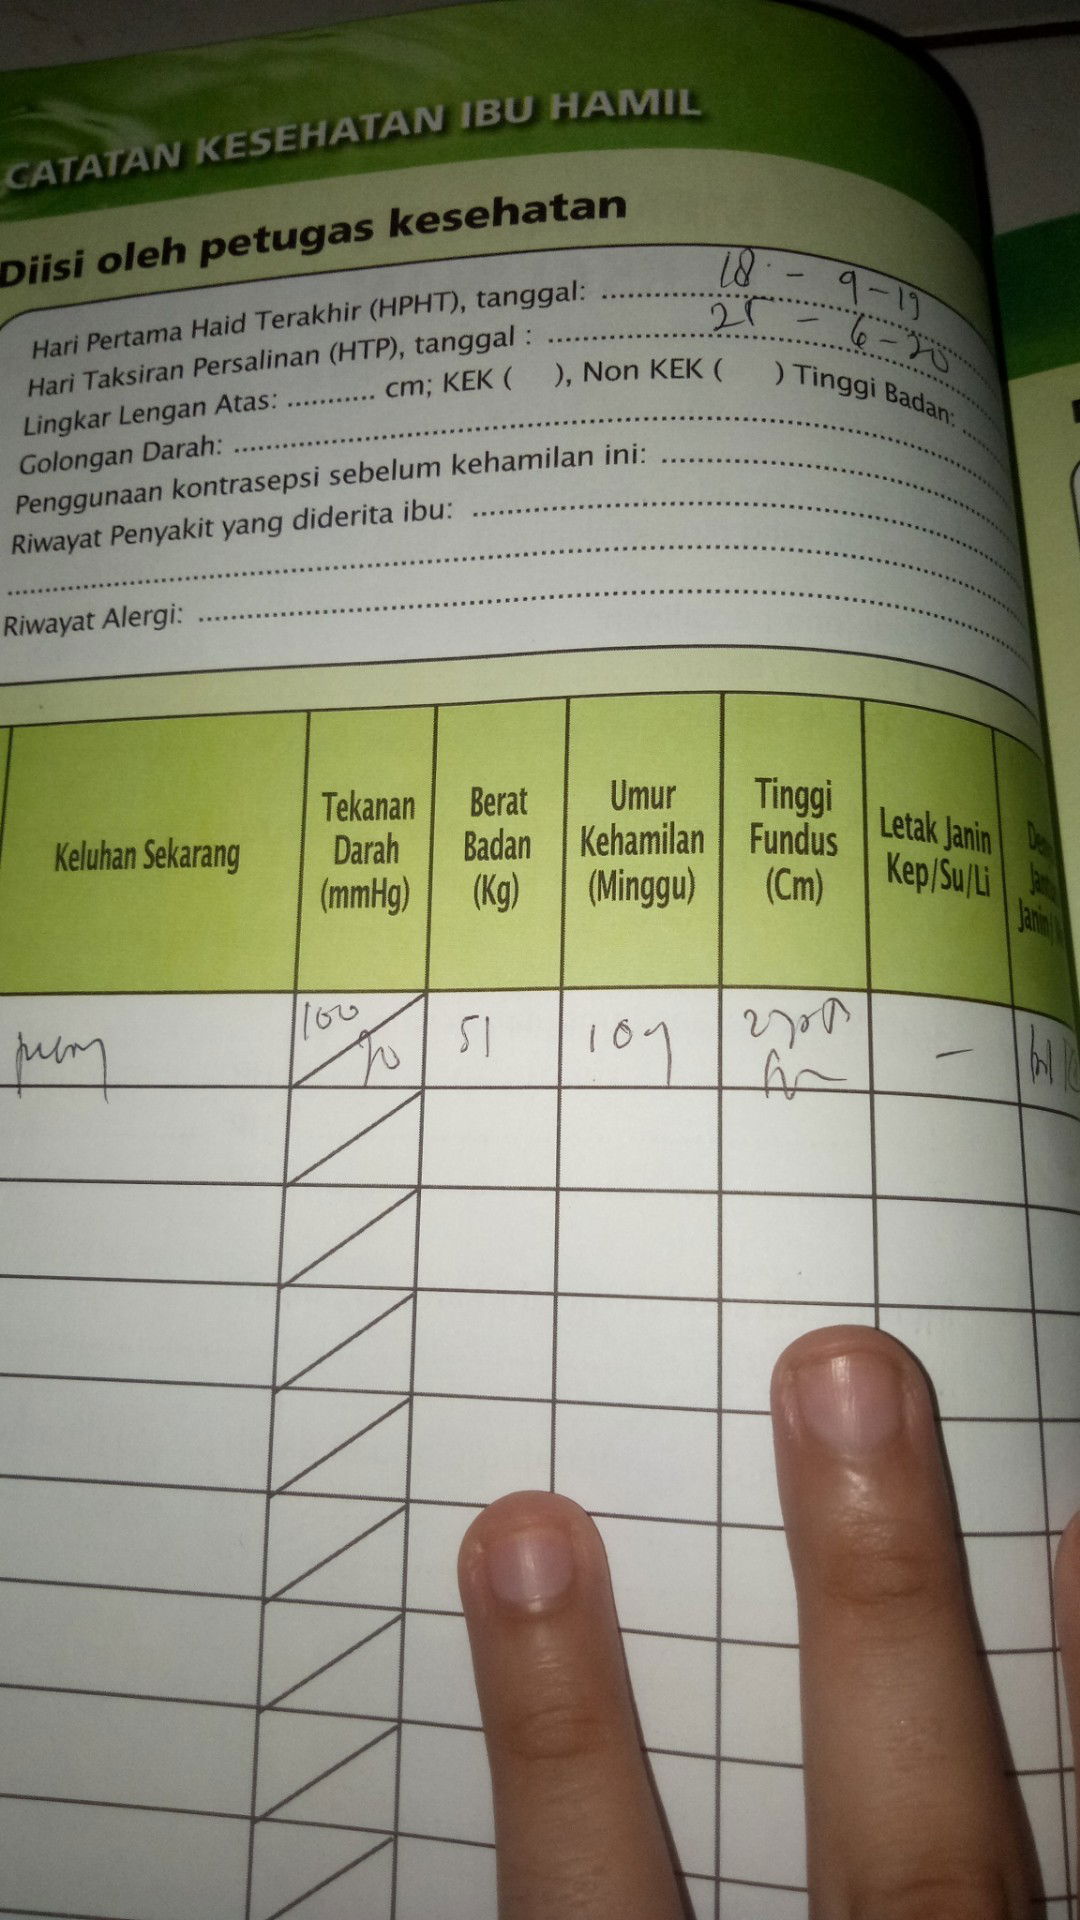 CATATAN KESEHATAN IBU HAMIL
Diisi oleh petugas kesehatan
Hari Pertama Haid Terakhir (HPHT), tanggal: .................... 18 - 9 - 19
Hari Taksiran Persalinan (HTP), tanggal : .................... 25 - 6 - 20
Lingkar Lengan Atas: ........... cm; KEK (    ), Non KEK (    ) Tinggi Badan: .....
Golongan Darah: ....................
Penggunaan kontrasepsi sebelum kehamilan ini: ....................
Riwayat Penyakit yang diderita ibu: ....................
....................
Riwayat Alergi: ....................
Keluhan Sekarang
Tekanan Darah (mmHg)
Berat Badan (Kg)
Umur Kehamilan (Minggu)
Tinggi Fundus (Cm)
Letak Janin Kep/Su/Li
Janin
100 51 -